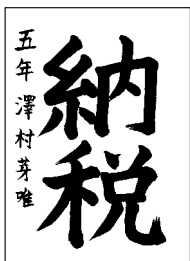 納税
五年 澤村芽唯